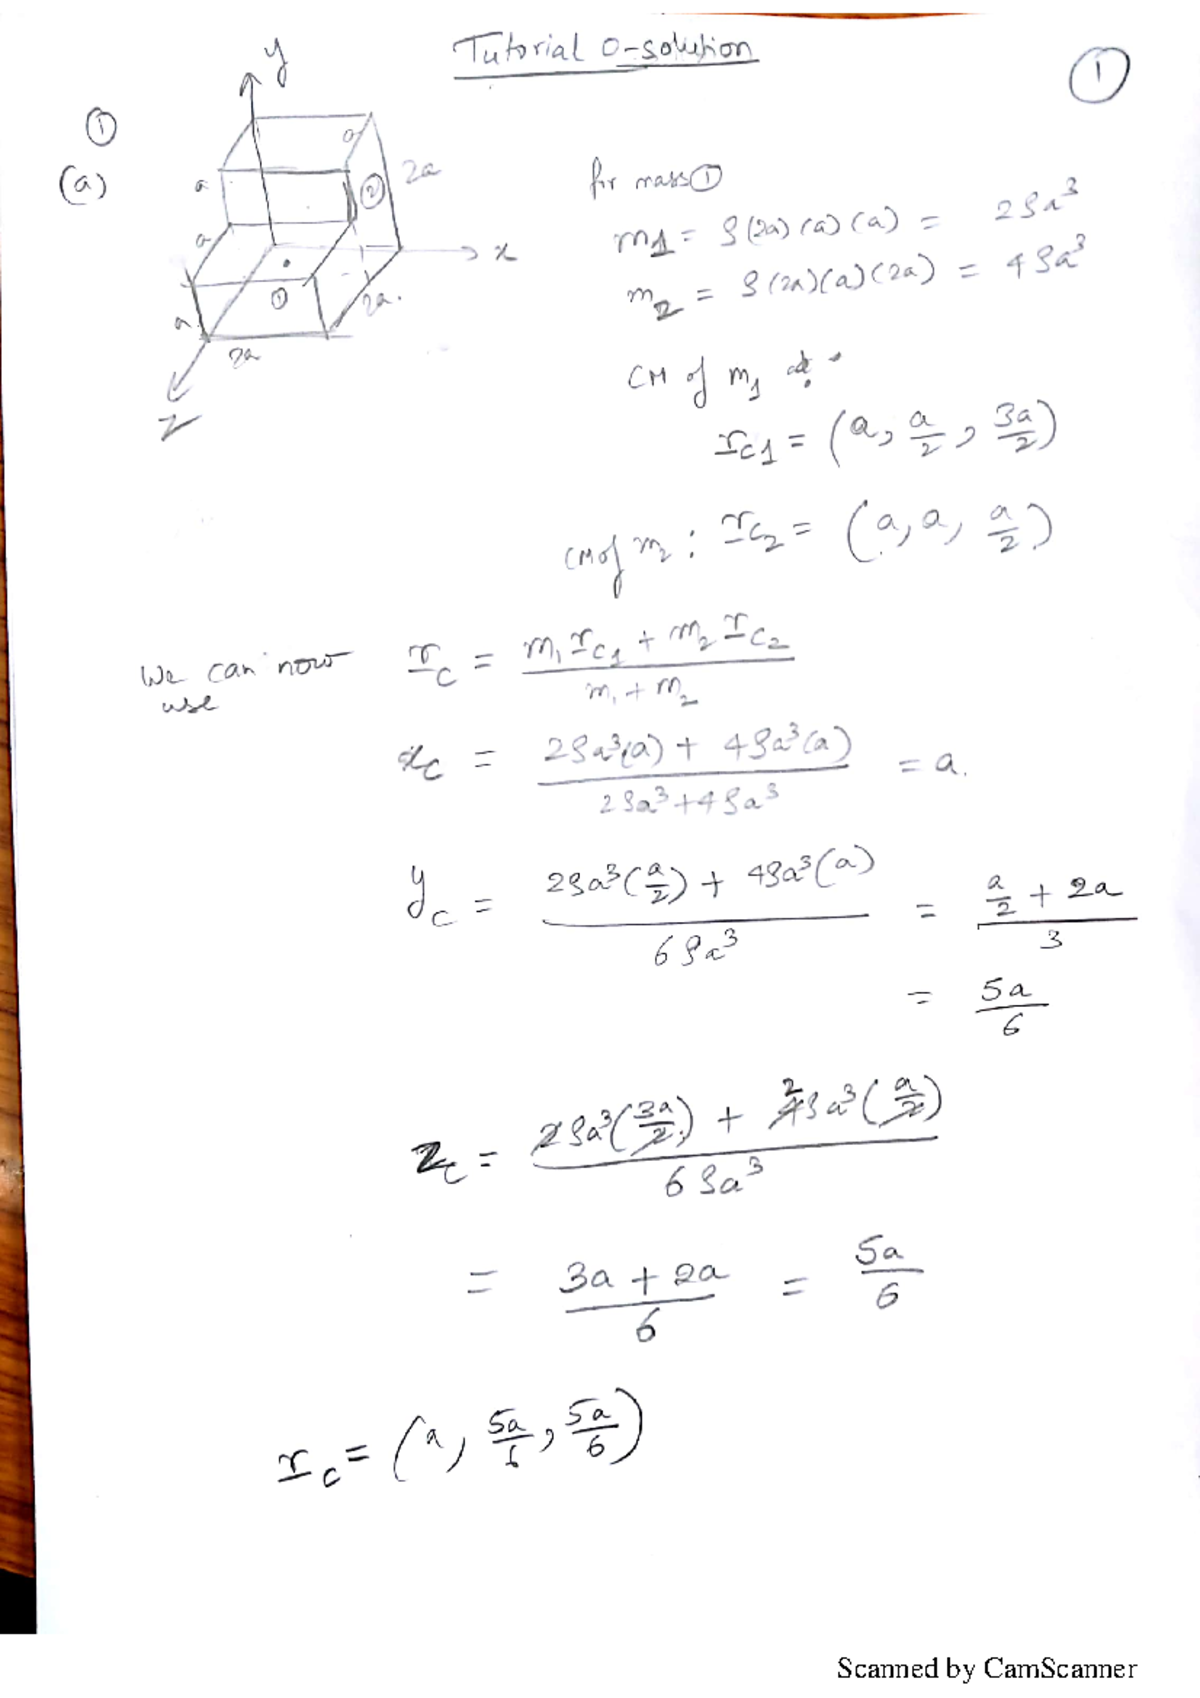 Tutorial 0-solution
1
1
(a)
y
a
2a
a
2
a
x
1
2a.
a
2a
z
for mass ①
m₁ = ρ(2a)(a)(a) = 2ρa³
m₂ = ρ(2a)(a)(2a) = 4ρa³
CM of m₁
r_c1 = (a, a/2, 3a/2)
CM of m₂ : r_c2 = (a, a, a/2)
We can now use r_c = (m₁ r_c1 + m₂ r_c2)/(m₁ + m₂)
x_c = (2ρa³(a) + 4ρa³(a))/(2ρa³+4ρa³) = a.
y_c = (2ρa³(a/2) + 4ρa³(a))/(6ρa³) = (a/2 + 2a)/3
= 5a/6
z_c = (2ρa³(3a/2) + 4ρa³(a/2))/(6ρa³)
= (3a + 2a)/6 = 5a/6
r_c = (a, 5a/6, 5a/6)
Scanned by CamScanner